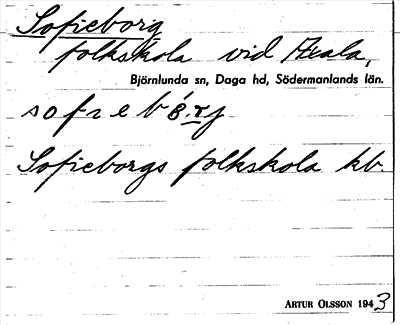 Sofieborg
folkskola vid Axala,
Björnlunda sn, Daga hd, Södermanlands län.
Sofieborgs folkskola kb.
ARTUR OLSSON 1943